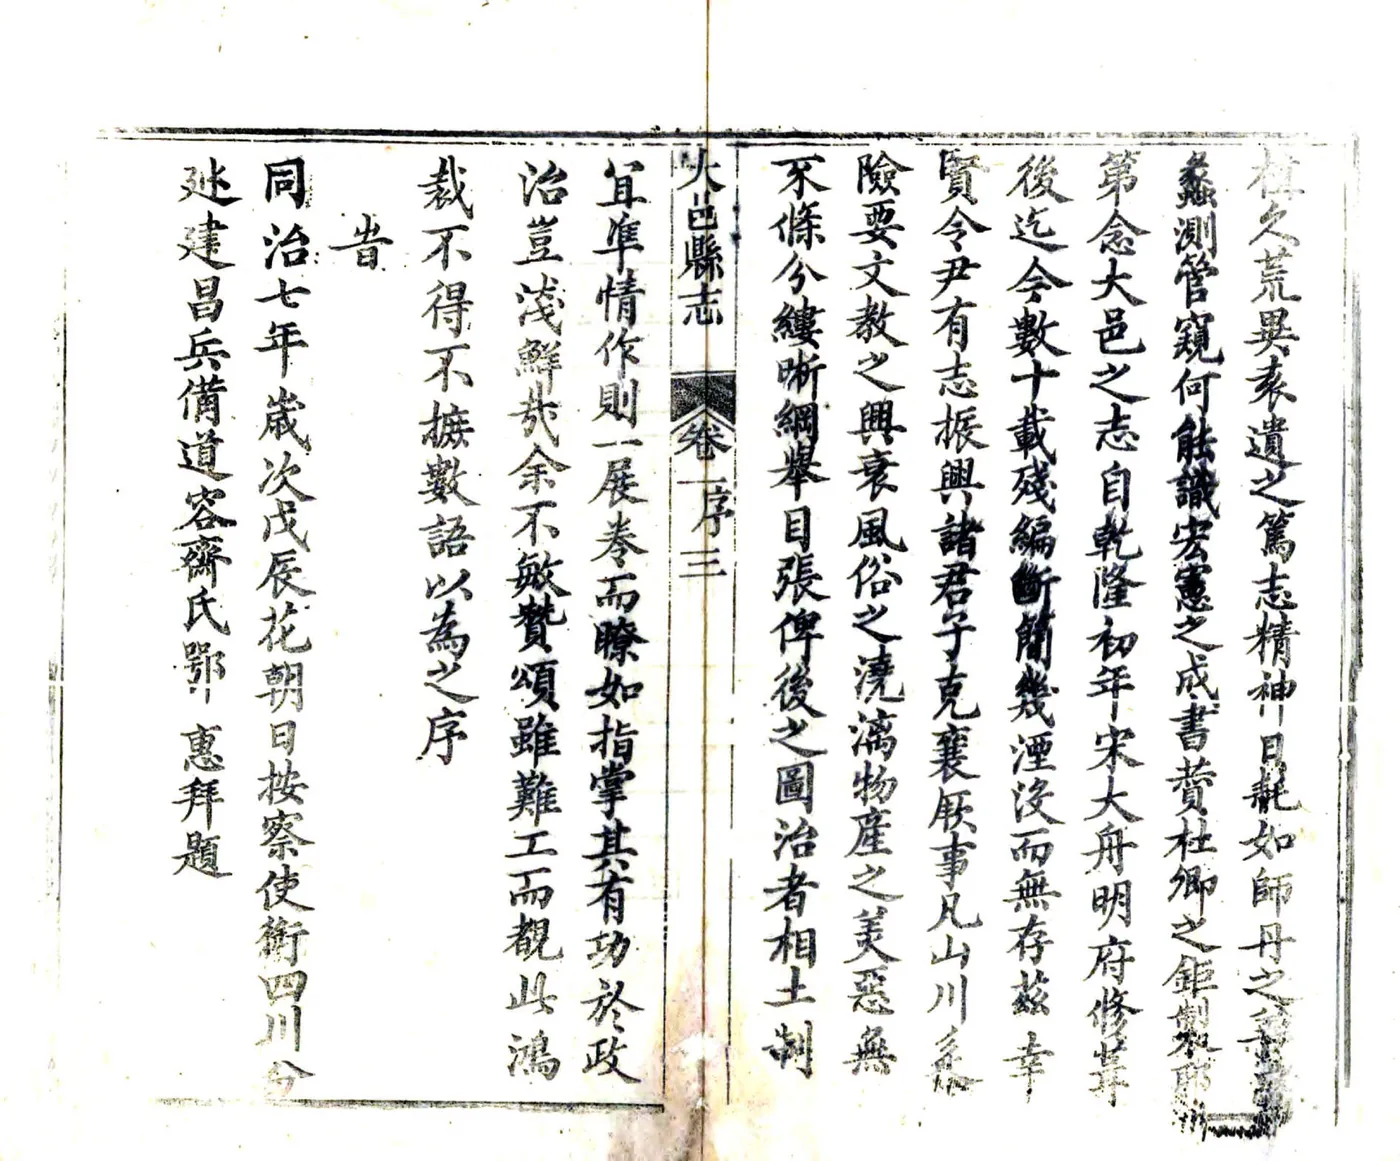 植久荒異袁遺之篤志精神日耗如師丹之
蠡測管窺何能識宏憲之成書賛杜卿之鉅製
第念大邑之志自乾隆初年宋大舟明府修葺
後迄今數十載殘編斷簡幾湮沒而無存茲幸
賢令尹有志振興諸君子克襄厥事凡山川
險要文教之興衰風俗之澆漓物產之美惡無
不條分縷晰綱舉目張俾後之圖治者相土制
大邑縣志 卷一序 三
宜準情作則一展卷而瞭如指掌其有功於政
治豈淺鮮哉余不敏贊頌雖難工而覩此鴻
裁不得不摭數語以為之序
旹
同治七年嵗次戊辰花朝日按察使銜四川分
廵建昌兵備道容齋氏鄂惠拜題